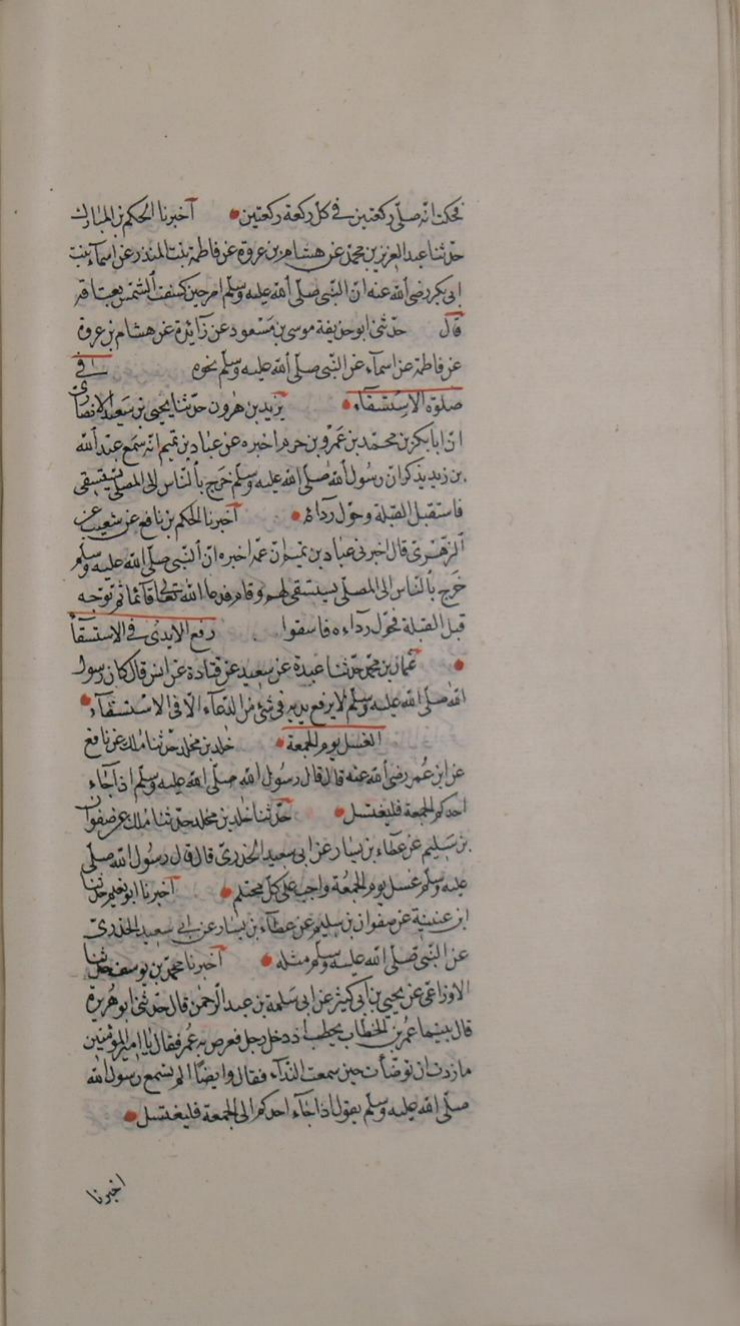 فحكت انه صلى ركعتين في كل ركعة ركعتين • اخبرنا الحكم بن المبارك
حدثنا عبد العزيز بن محمد عن هشام بن عروة عن فاطمة بنت المنذر عن اسماء بنت
ابي بكر رضي الله عنه ان النبي صلى الله عليه وسلم امر حين كسفت الشمس بعتاقة
قال حدثني ابو حذيفة موسى بن مسعود عن زائدة عن هشام بن عروة
عن فاطمة عن اسماء عن النبي صلى الله عليه وسلم نحوه في
صلوة الاستسقاء • يزيد بن هرون حدثنا يحيى بن سعيد الانصاري
ان ابا بكر بن محمد بن عمرو بن حزم اخبره عن عباد بن تميم انه سمع عبد الله
بن زيد يذكر ان رسول الله صلى الله عليه وسلم خرج بالناس الى المصلى يستسقي
فاستقبل القبلة وحول رداءه • اخبرنا الحكم بن نافع عن شعيب عن
الزهري قال اخبرني عباد بن تميم ان عمه اخبره ان النبي صلى الله عليه وسلم
خرج بالناس الى المصلى يستسقي لهم وقام فدعا الله تعالى قائما ثم توجه
قبل القبلة فحول رداءه فاسقوا رفع الايدي في الاستسقاء
• عثمان بن محمد حدثنا عبدة عن سعيد عن قتادة عن انس قال كان رسول
الله صلى الله عليه وسلم لا يرفع يديه في شئ من الدعاء الا في الاستسقاء •
الغسل يوم الجمعة • خلد بن مخلد حدثنا ملك عن نافع
عن ابن عمر رضي الله عنه قال قال رسول الله صلى الله عليه وسلم اذا جاء
احدكم الجمعة فليغتسل • حدثنا خلد بن مخلد حدثنا ملك عن صفوان
بن سليم عن عطاء بن يسار عن ابي سعيد الخدري قال قال رسول الله صلى
عليه وسلم غسل يوم الجمعة واجب على كل محتلم • اخبرنا ابو نعيم حدثنا
ابن عيينة عن صفوان بن سليم عن عطاء بن يسار عن ابي سعيد الخدري
عن النبي صلى الله عليه وسلم مثله • اخبرنا محمد بن يوسف حدثنا
الاوزاعي عن يحيى بن ابي كثير عن ابي سلمة بن عبد الرحمن قال حدثني ابو هريرة
قال بينما عمر بن الخطاب يخطب اذ دخل رجل فعرض به عمر فقال يا امير المؤمنين
ما زدت ان توضأت حين سمعت النداء فقال وايضا الم تسمع رسول الله
صلى الله عليه وسلم يقول اذا جاء احدكم الى الجمعة فليغتسل •
اخبرنا